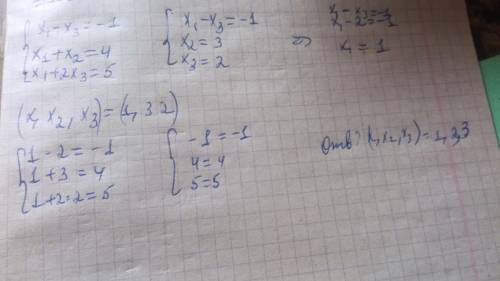 x₁ - x₃ = -1
x₁ + x₂ = 4
x₁ + 2x₃ = 5
x₁ - x₃ = -1
x₂ = 3
x₃ = 2
x₁ - x₃ = -1
x₁ - 2 = -1
x₁ = 1
(x, x₂, x₃) = (1, 3 2)
1 - 2 = -1
1 + 3 = 4
1 + 2·2 = 5
-1 = -1
4 = 4
5 = 5